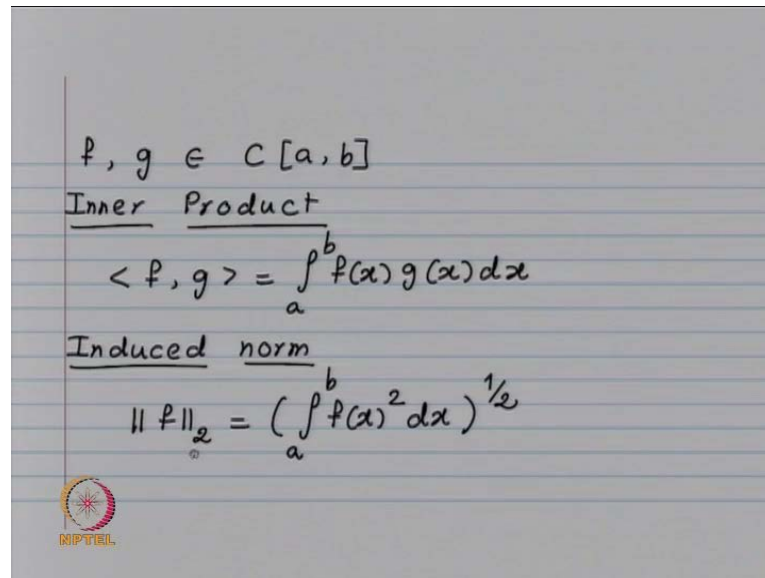 f, g ∈ C [a, b]
Inner Product
< f, g > = ∫_a^b f(x) g(x) dx
Induced norm
|| f ||_2 = ( ∫_a^b f(x)^2 dx )^{1/2}
NPTEL